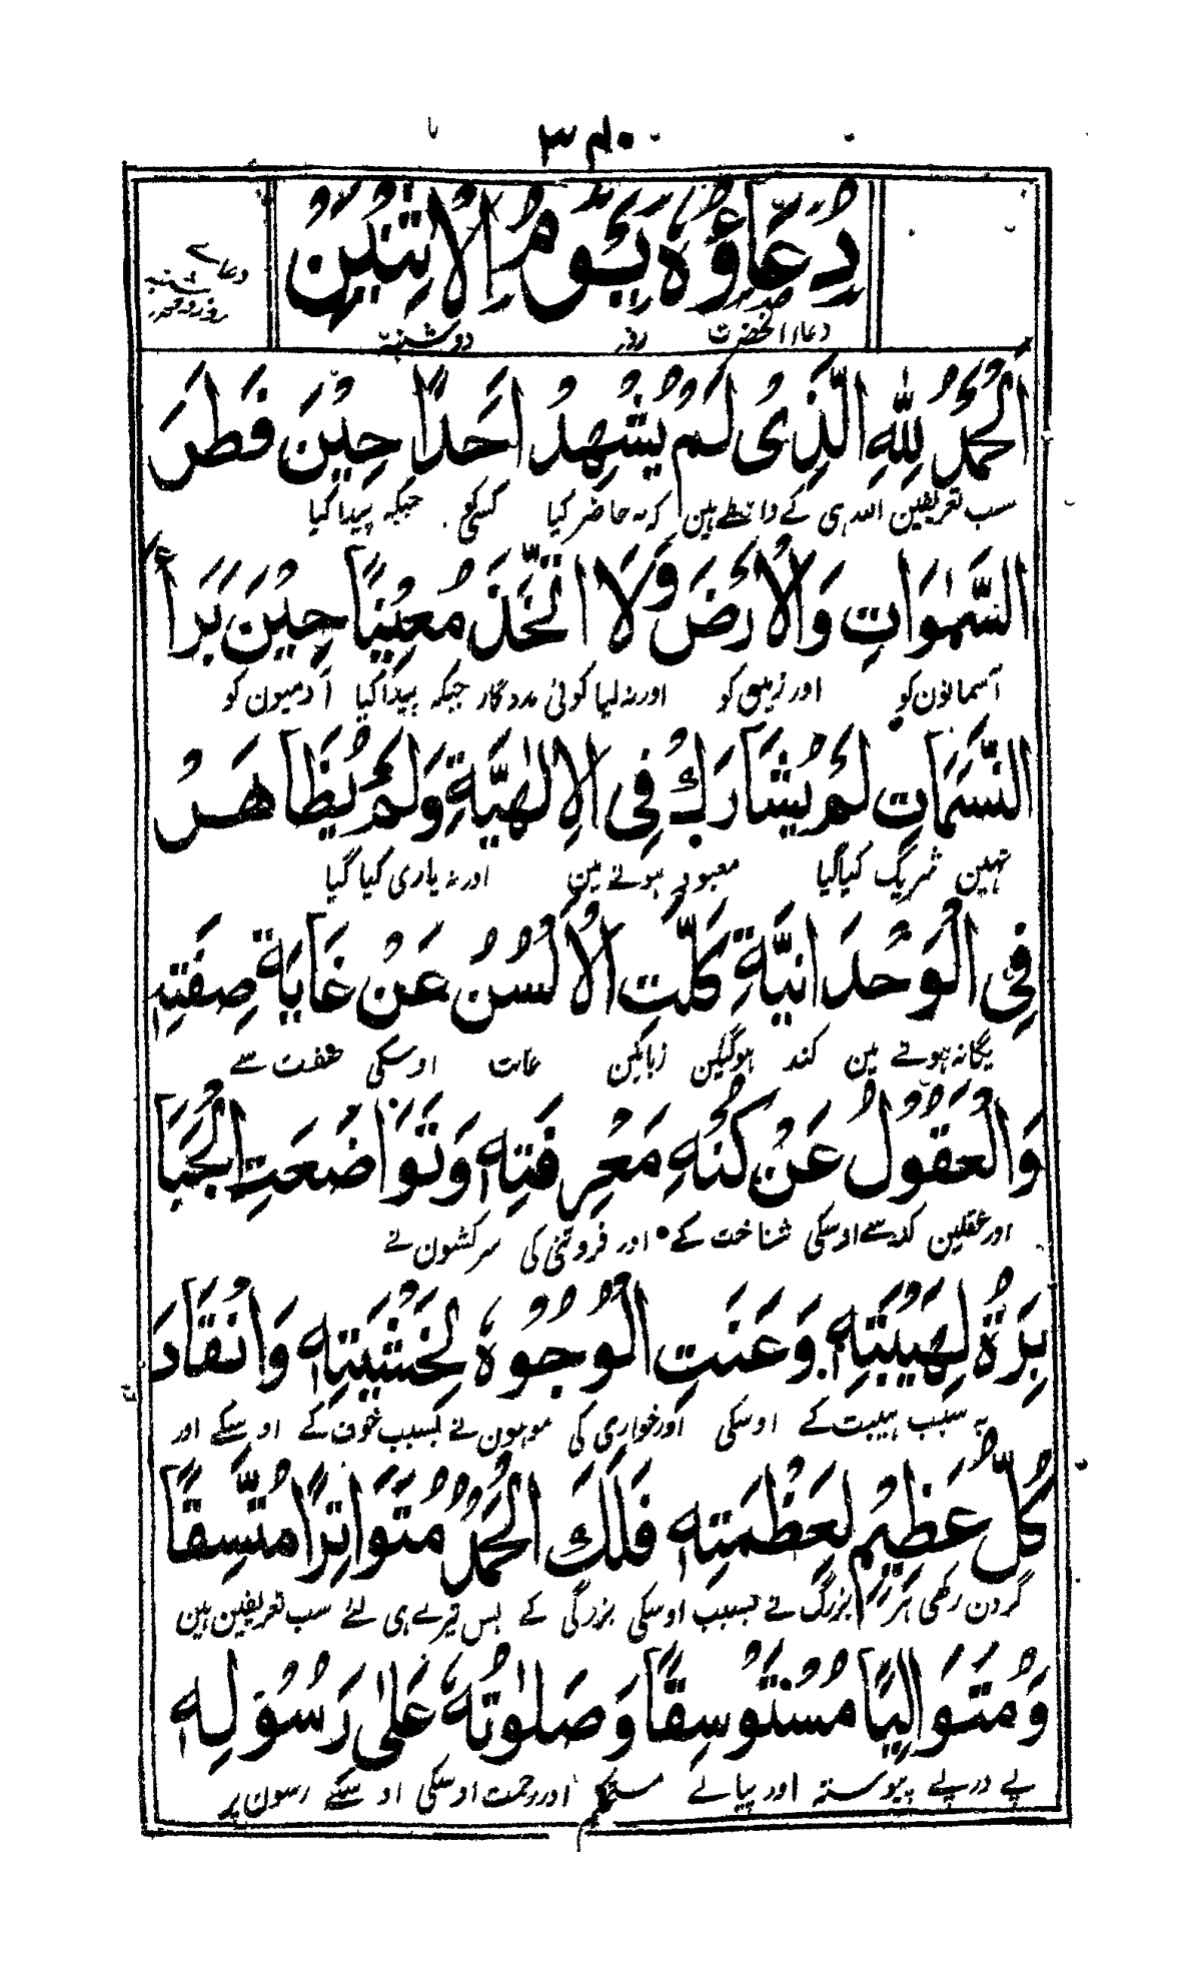 ۳۴۰
دُعَاؤُهٗ يَوْمُ الْاِثْنَيْنِ
دعاء آنحضرت روز دوشنبہ
دعاے
روز دوشنبہ
اَلْحَمْدُ لِلّٰهِ الَّذِیْ لَمْ يُشْهِدْ اَحَدًا حِيْنَ فَطَرَ
سب تعریفین اللہ ہی کے واسطے ہین کہ نہ حاضر کیا کسیکو جبکہ پیدا کیا
السَّمٰوَاتِ وَالْاَرْضَ وَلَا اتَّخَذَ مُعِيْنًا حِيْنَ بَرَأَ
آسمانون کو اور زمین کو اور نہ لیا کوئی مددگار جبکہ پیدا کیا آدمیون کو
النَّسَمَاتِ لَمْ يُشَارَكْ فِی الْاِلٰهِيَّةِ وَلَمْ يُظَاهَرْ
نہین شریک کیا گیا معبود ہونے مین اور نہ یاری کیا گیا
فِی الْوَحْدَانِيَّةِ كَلَّتِ الْاَلْسُنُ عَنْ غَايَةِ صِفَتِهٖ
یگانہ ہونے مین کند ہوگئین زبانین غایت اوسکی صفت سے
وَالْعُقُوْلُ عَنْ كُنْهِ مَعْرِفَتِهٖ وَتَوَاضَعَتِ الْجَبَا
اور عقلین کنہ سے اوسکی شناخت کے اور فروتنی کی سرکشون نے
بِرَةُ لِهَيْبَتِهٖ وَعَنَتِ الْوُجُوْهُ لِخَشْيَتِهٖ وَانْقَادَ
بہ سبب ہیبت کے اوسکی اور خواری کی مونہون نے بسبب خوف کے اوسکے اور
كُلُّ عَظِيْمٍ لِعَظْمَتِهٖ فَلَكَ الْحَمْدُ مُتَوَاتِرًا مُتَّسِقًا
گردن رکھی ہر بزرگ نے بسبب اوسکی بزرگی کے بس تیرے ہی لئے سب تعریفین ہین
وَمُتَوَالِيًا مُسْتَوْسِقًا وَصَلَوٰتُهٗ عَلٰی رَسُوْلِهٖ
پے درپے پیوستہ اور پیاپے مستحکم اور رحمت اوسکی اوسکے رسون پر